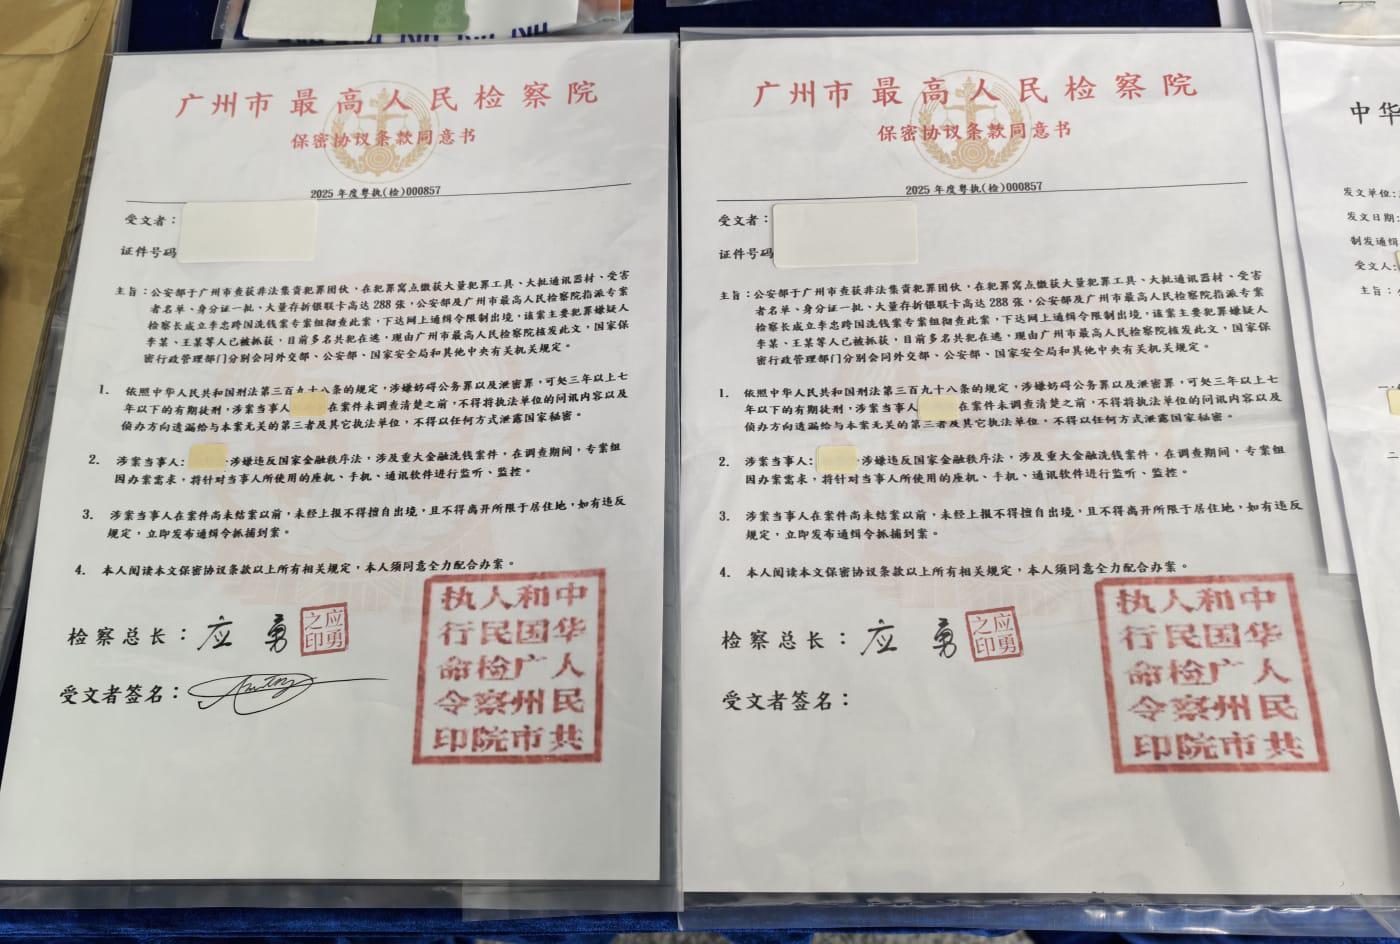 广州市最高人民检察院
保密协议条款同意书
2025年度粤执(检)000857
受文者：
证件号码
主旨：公安部于广州市查获非法集资犯罪团伙，在犯罪窝点缴获大量犯罪工具、大批通讯器材、受害
者名单、身分证一批、大量存折银联卡高达288张，公安部及广州市最高人民检察院指派专案
检察长成立李忠跨国洗钱案专案组彻查此案，下达网上通缉令限制出境，该案主要犯罪嫌疑人
李某、王某等人已被抓获，目前多名共犯在逃，现由广州市最高人民检察院核发此文，国家保
密行政管理部门分别会同外交部、公安部、国家安全局和其他中央有关机关规定。
1. 依照中华人民共和国刑法第三百九十八条的规定，涉嫌妨碍公务罪以及泄密罪，可处三年以上七
年以下的有期徒刑，涉案当事人 在案件未调查清楚之前，不得将执法单位的问讯内容以及
侦办方向透漏给与本案无关的第三者及其它执法单位，不得以任何方式泄露国家秘密。
2. 涉案当事人: 涉嫌违反国家金融秩序法，涉及重大金融洗钱案件，在调查期间，专案组
因办案需求，将针对当事人所使用的座机、手机、通讯软件进行监听、监控。
3. 涉案当事人在案件尚未结案以前，未经上报不得擅自出境，且不得离开所限于居住地，如有违反
规定，立即发布通缉令抓捕到案。
4. 本人阅读本文保密协议条款以上所有相关规定，本人须同意全力配合办案。
检察总长：应勇
应勇之印
受文者签名：
中华人民共
和国广州市
人民检察院
执行命令印
广州市最高人民检察院
保密协议条款同意书
2025年度粤执(检)000857
受文者：
证件号码
主旨：公安部于广州市查获非法集资犯罪团伙，在犯罪窝点缴获大量犯罪工具、大批通讯器材、受害
者名单、身分证一批、大量存折银联卡高达288张，公安部及广州市最高人民检察院指派专案
检察长成立李忠跨国洗钱案专案组彻查此案，下达网上通缉令限制出境，该案主要犯罪嫌疑人
李某、王某等人已被抓获，目前多名共犯在逃，现由广州市最高人民检察院核发此文，国家保
密行政管理部门分别会同外交部、公安部、国家安全局和其他中央有关机关规定。
1. 依照中华人民共和国刑法第三百九十八条的规定，涉嫌妨碍公务罪以及泄密罪，可处三年以上七
年以下的有期徒刑，涉案当事人 在案件未调查清楚之前，不得将执法单位的问讯内容以及
侦办方向透漏给与本案无关的第三者及其它执法单位，不得以任何方式泄露国家秘密。
2. 涉案当事人: 涉嫌违反国家金融秩序法，涉及重大金融洗钱案件，在调查期间，专案组
因办案需求，将针对当事人所使用的座机、手机、通讯软件进行监听、监控。
3. 涉案当事人在案件尚未结案以前，未经上报不得擅自出境，且不得离开所限于居住地，如有违反
规定，立即发布通缉令抓捕到案。
4. 本人阅读本文保密协议条款以上所有相关规定，本人须同意全力配合办案。
检察总长：应勇
应勇之印
受文者签名：
中华人民共
和国广州市
人民检察院
执行命令印
中华
发文单位:
发文日期:
制发通缉
受文人:
主旨: